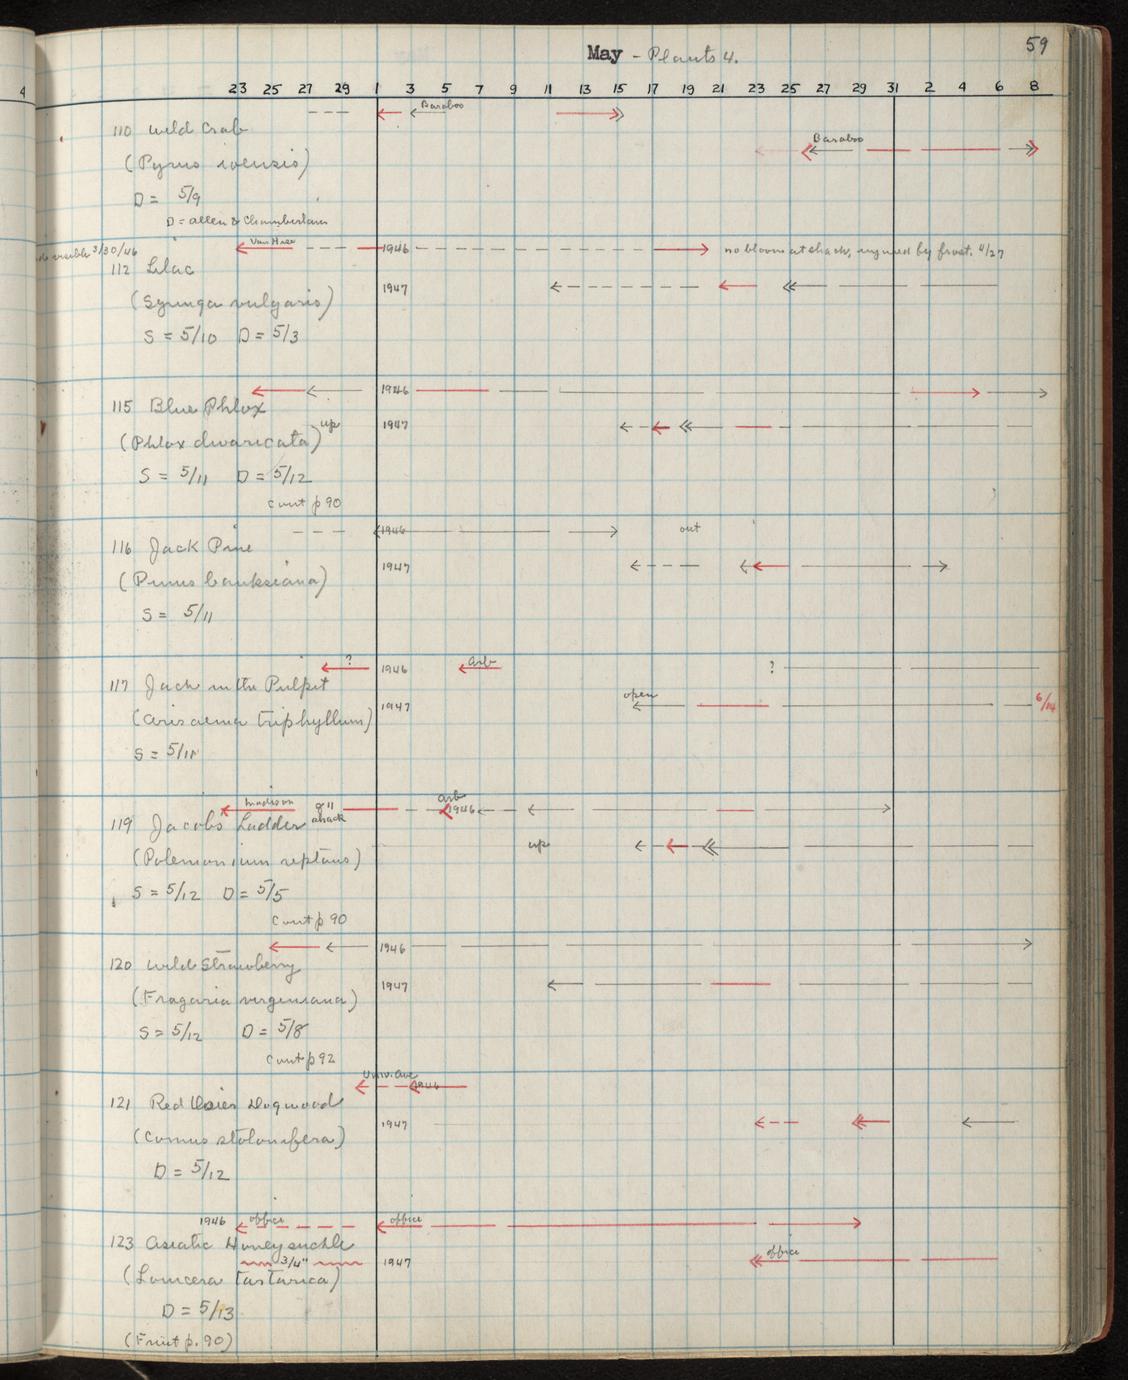 59
May - Plants 4.
4 23 25 27 29 1 3 5 7 9 11 13 15 17 19 21 23 25 27 29 31 2 4 6 8
Baraboo
110 Wild Crab
Baraboo
(Pyrus ioensis)
D = 5/9
D = Allen & Chamberlain
visible 3/30/46 Van Hise 1946 no bloom at shack, injured by frost. 4/27
112 Lilac
1947
(Syringa vulgaris)
S = 5/10 D = 5/3
1946
115 Blue Phlox
up 1947
(Phlox divaricata)
S = 5/11 D = 5/12
Cont p 90
1946 out
116 Jack Pine
1947
(Pinus banksiana)
S = 5/11
? 1946 Arb ?
117 Jack in the Pulpit
open
1947 6/14
(Arisaema triphyllum)
S = 5/11
Madison 9" shack Arb 1946
119 Jacobs Ladder
up
(Polemonium reptans)
S = 5/12 D = 5/5
Cont p 90
1946
120 Wild Strawberry
1947
(Fragaria virginiana)
S = 5/12 D = 5/8
Cont p 92
Univ. Ave 1946
121 Red Osier Dogwood
1947
(Cornus stolonifera)
D = 5/12
1946 office office
123 Asiatic Honeysuckle
3/4" 1947 office
(Lonicera tartarica)
D = 5/13
(Fruit p. 90)